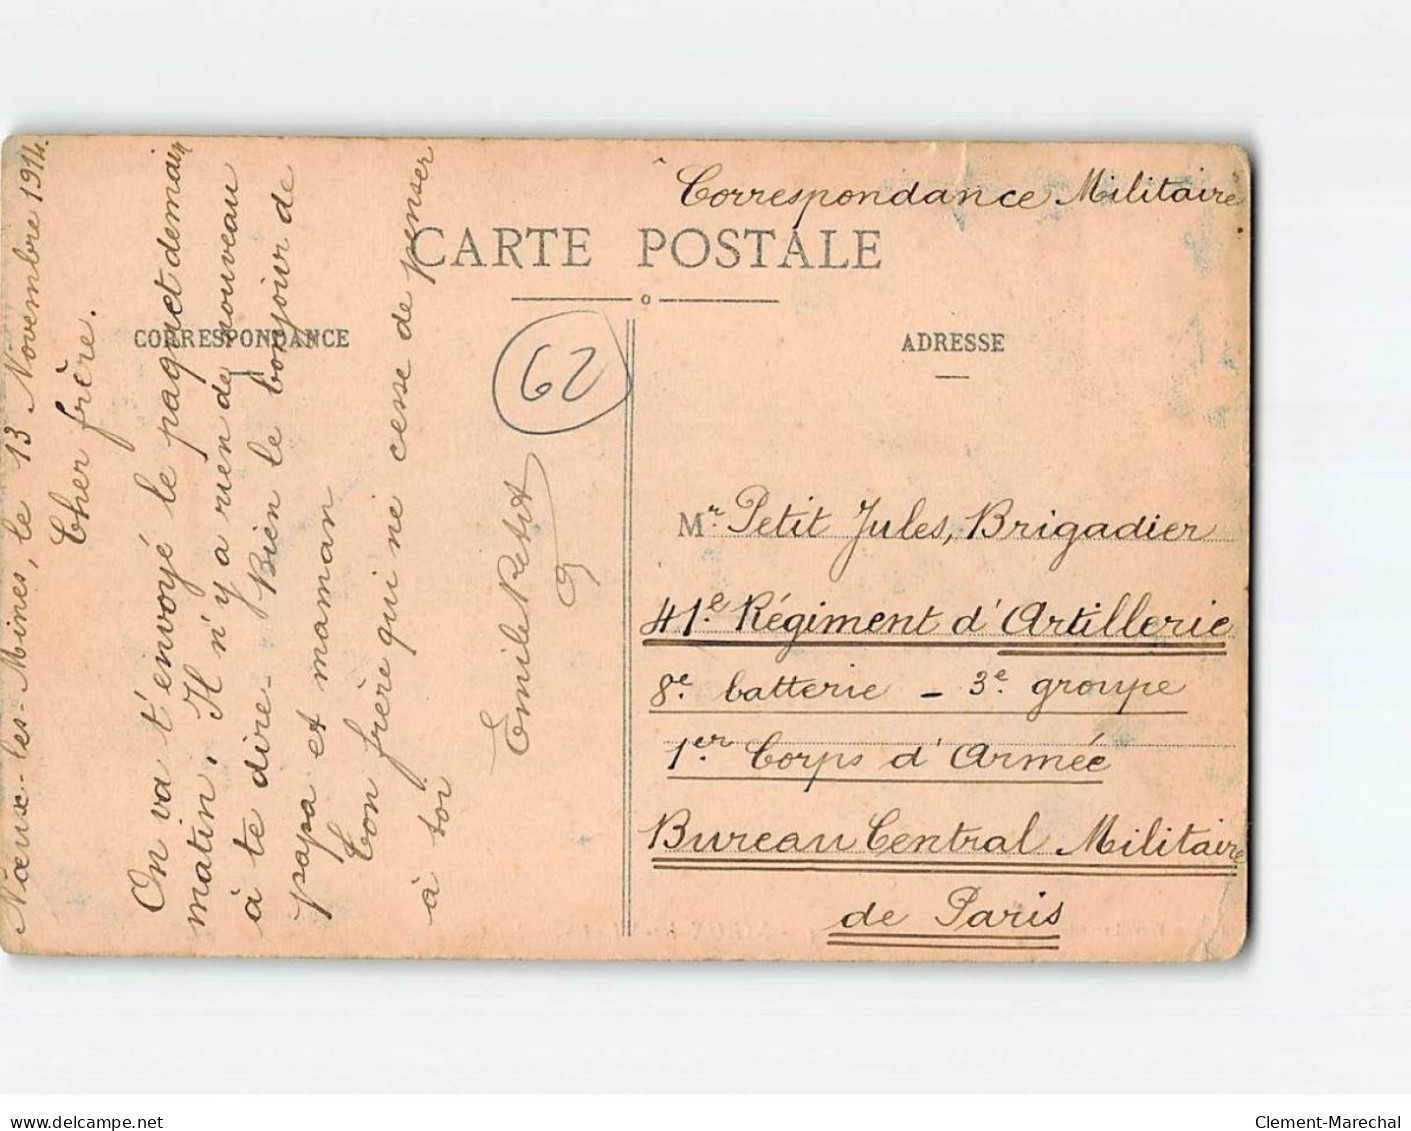 Correspondance Militaire
CARTE POSTALE
CORRESPONDANCE
ADRESSE
62
Nœux-les-Mines, le 13 Novembre 1914.
Cher frère.
On va t'envoyé le paquet demain
matin. Il n'y a rien de nouveau
à te dire. Bien le bonjour de
papa et maman
Ton frère qui ne cesse de penser
à toi
Emile Petit
Mr. Petit Jules, Brigadier
41e. Régiment d'Artillerie
8e. batterie - 3e. groupe
1er Corps d'Armée
Bureau Central Militaire
de Paris
www.delcampe.net
Clement-Marechal